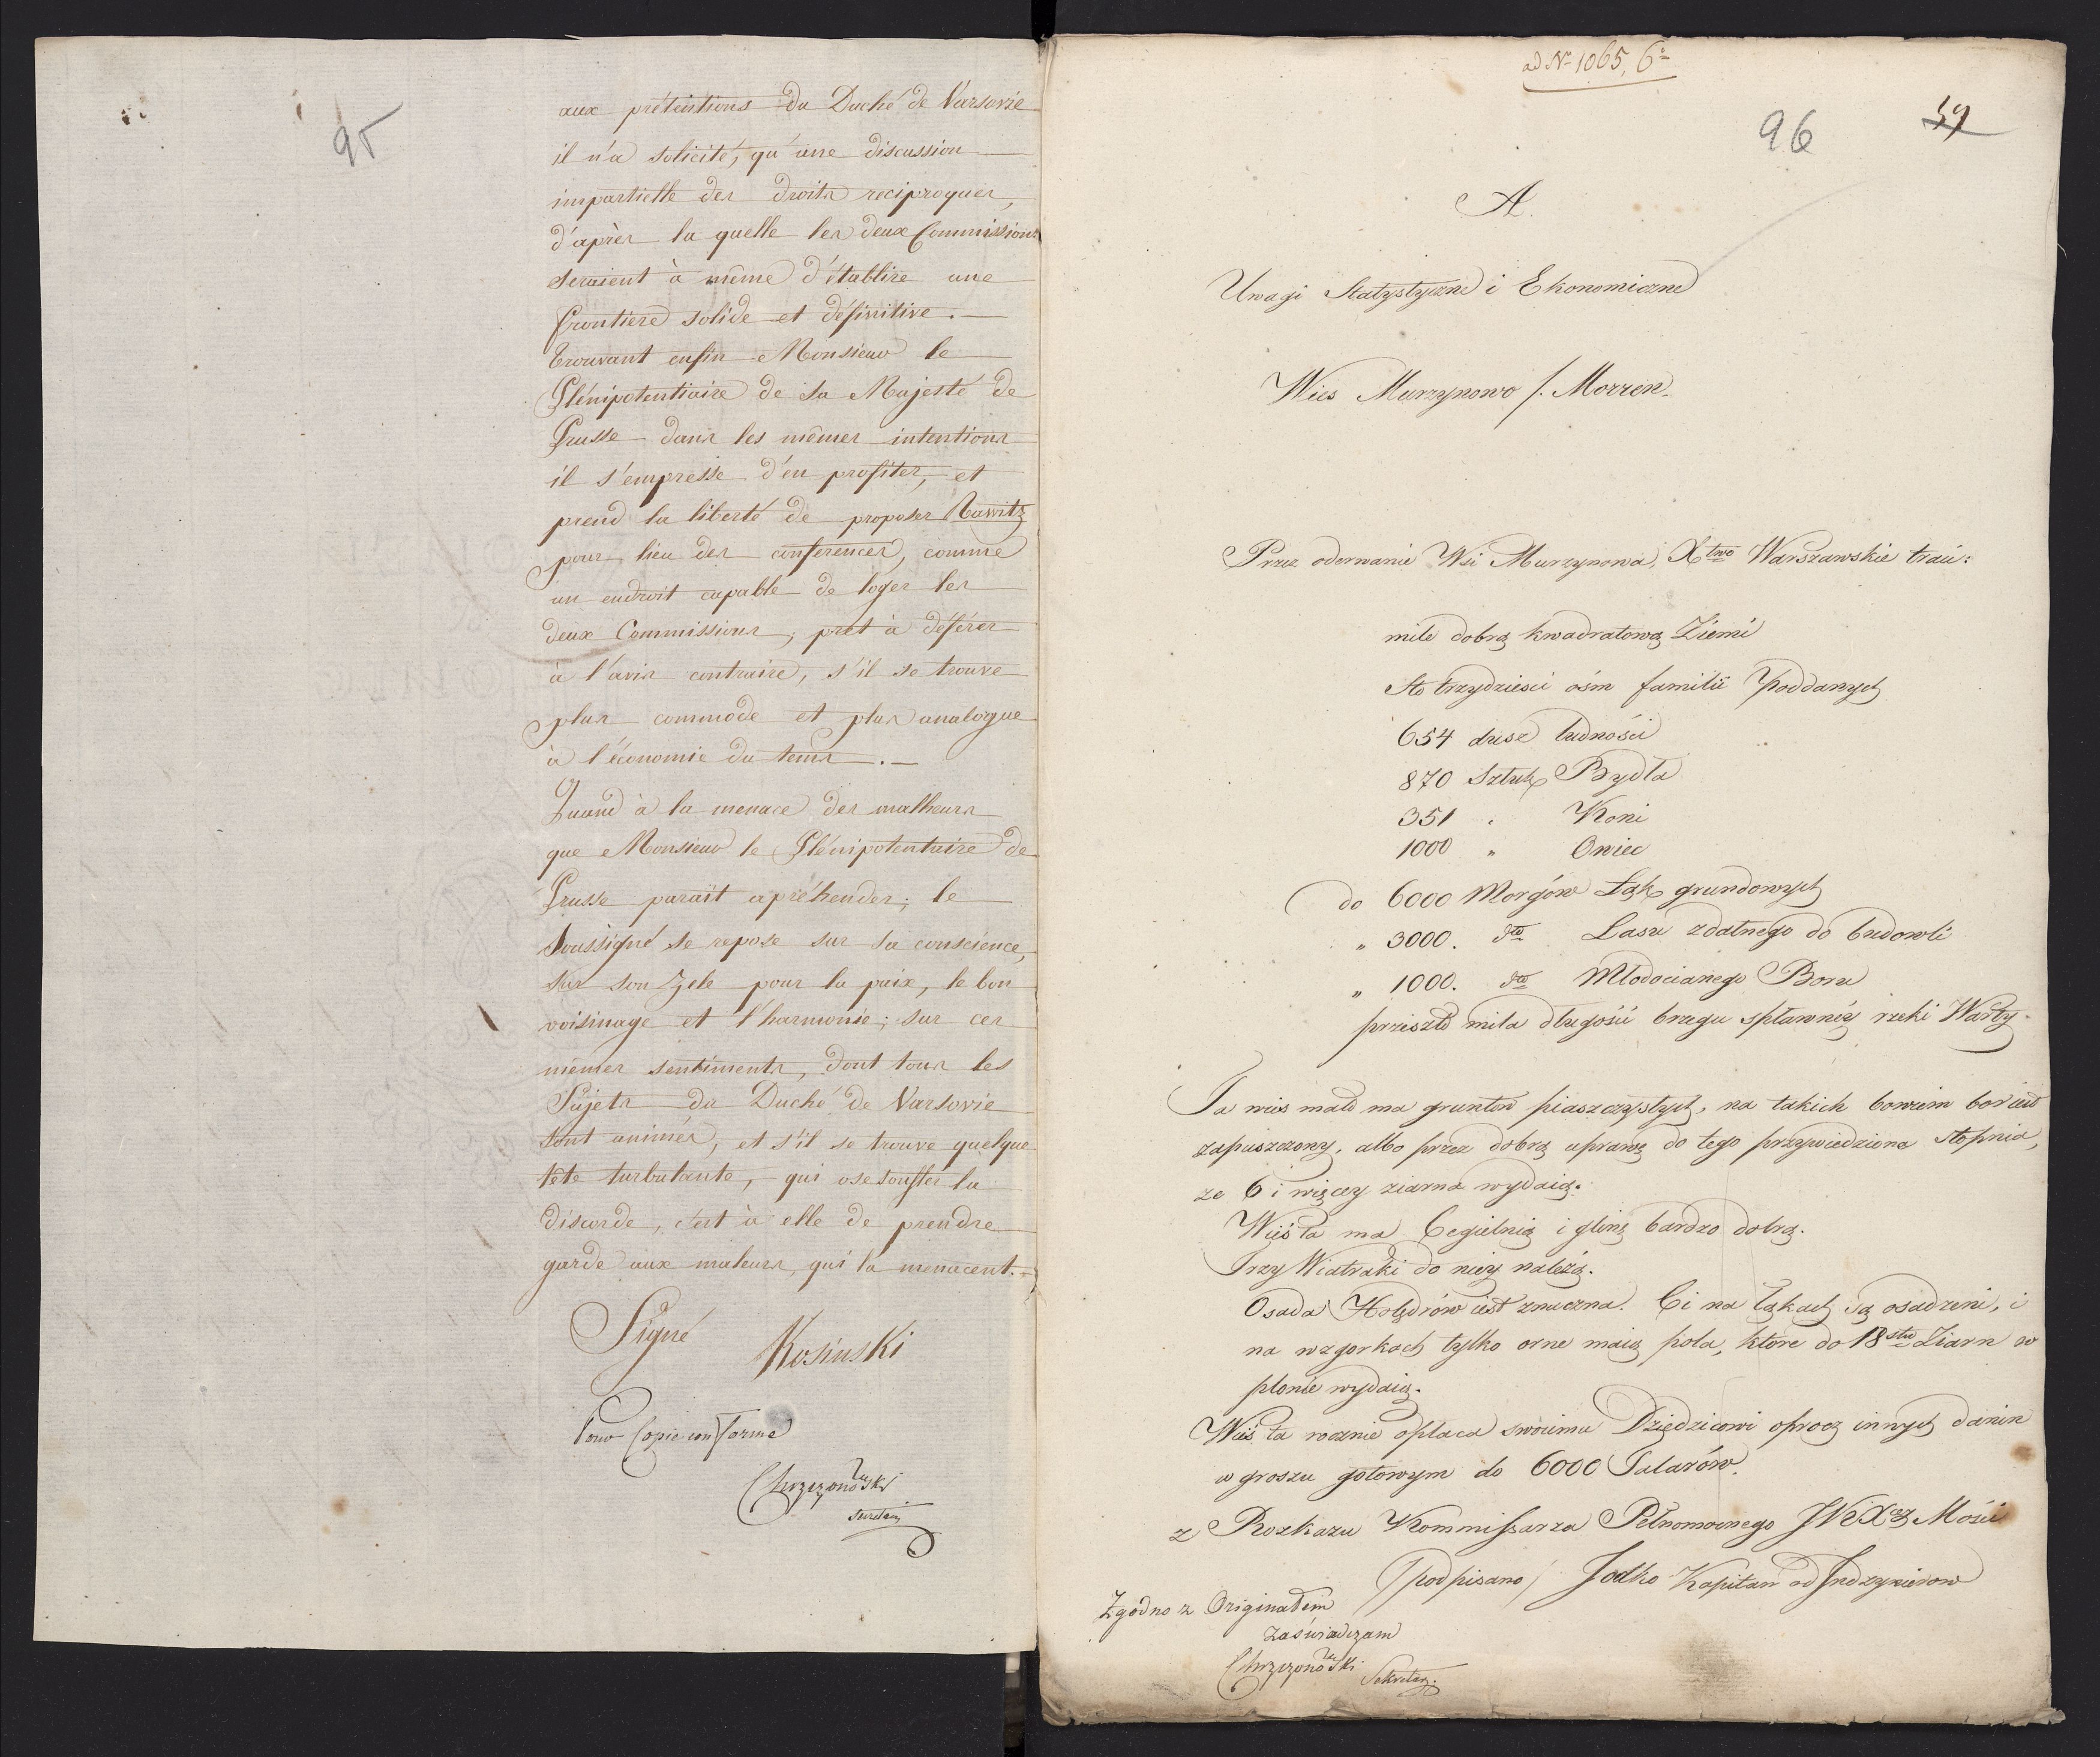 95
aux prétentions du Duché de Varsovie
il n'a solicité, qu'une discussion
impartielle des droits reciproques,
d'après la quelle les deux Commissions
seraient à même d'établire une
frontiere solide et définitive.
Trouvant enfin Monsieur le
Plénipotentiaire de Sa Majesté de
Prusse dans les mêmes intentions
il s'empresse d'en profiter, et
prend la liberté de proposer Rawitz
pour lieu des conferences, comme
un endroit capable de loger les
deux Commissions; pret à déférer
à l'avis contraire, s'il se trouve
plus commode et plus analogue
à l'économie du tems.
Quand à la menace des malheurs
que Monsieur le Plénipotentaire de
Prusse parait apréhender; le
Soussigné se repose sur sa conscience,
sur son zele pour la paix, le bon
voisinage et l'harmonie; sur ces
mêmes sentiments, dont tous les
Sujets du Duché de Varsovie
sont animés, et s'il se trouve quelque
tête turbulante, qui ose soufler la
discorde, c'est à elle de prendre
garde aux maleurs, qui la menacent.
Signé Kosinski
Pour Copie conforme
Chrzczonowski
Secretair
ad No 1065, 6o
96 59
A.
Uwagi Statystyczne i Ekonomiczne
Wies Murzynowo /. Morren.
Przez oderwanie Wsi Murzynowa, Xtwo Warszawskie traci:
mile dobrą kwadratową Ziemi
Sto trzydziesci ośm familii Poddanych
654 dusz ludności
870 Sztuk Bydła
351 " Koni
1000 " Owiec
do 6000 Morgów Łąk grundowych
" 3000. dto Lasu zdatnego do budowli
" 1000. dto Młodocianego Boru
przeszło mila długości brzegu spławnéy rzeki Warty.
Ta wies mało ma gruntow piaszczystych, na takich bowiem bor iest
zapuszczony, albo przez dobrą uprawę do tego przywiedziona stopnia,
ze 6 i więcey ziarna wydaią.
Wieś ta ma Cegielnią i glinę bardzo dobrą.
Trzy Wiatraki do niey należą.
Osada Holędrów iest znaczna. Ci na Łąkach są osadzeni, i
na wzgorkach tylko orne maią pola, ktore do 18stu Ziarn w
plonie wydaią.
Wieś ta rocznie opłaca swoiemu Dziedzicowi oprocz innych danin
w groszu gotowym do 6000 Talarów.
z Rozkazu Kommissarza Pełnomocnego JKXcey Mości
/podpisano/ Jodko Kapitan od Indzynierow
Zgodno z Originałem
Zaświadczam
Chrzczonowski
Sekretarz.